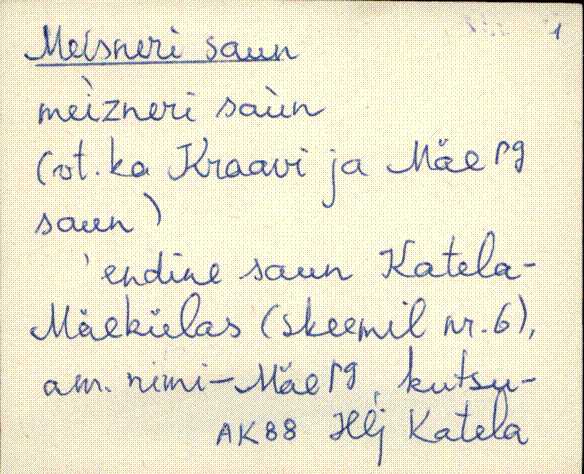 1
Meisneri saun
meìzneri saùn
(vt. ka Kraavi ja Mäe pg
saun)
'endine saun Katela-
Mäekülas (skeemil nr. 6),
am. nimi – Mäe pg, kutsu-
AK88 Hlj Katela